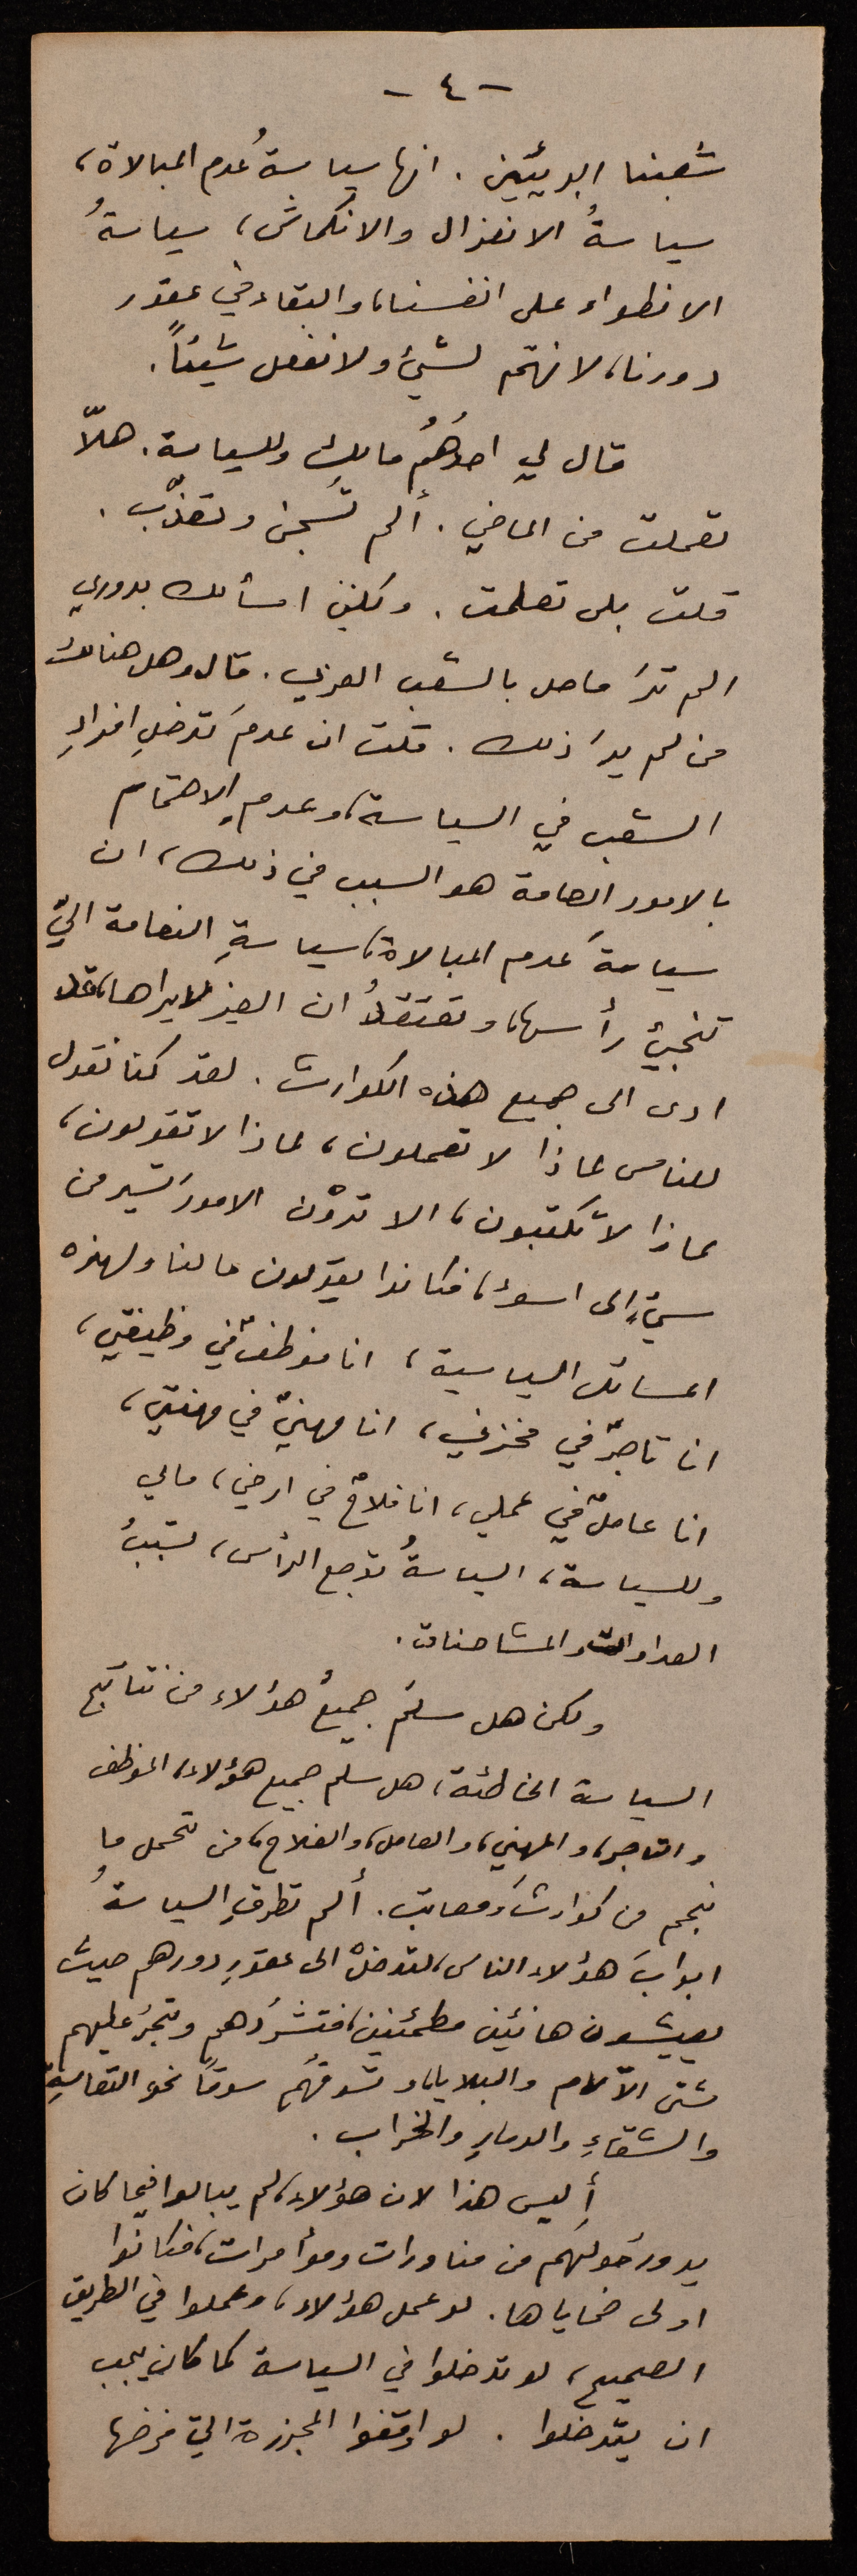 - ٤ -
شعبنا البريئين. انها سياسةُ عدم المبالاة،
سياسةُ الانعزال والانكماش، سياسةُ
الانطواء على انفسنا، والبقاء في عقور
دورنا، لا نهتم لشيءٍ ولا نفعل شيئاً.
قال لي احدُهُم مالِك وللسياسة. هلّا
تعملت من الماضي. ألم تُسجن وتعذّب.
قلت بلى تعلمت. ولكني اسألك بدوري
الم ترَ ما حل بالشعب العربي. قال وهل هناك
من لم يرَ ذلك. قلت ان عدمَ تدخلِ افرادِ
الشعب في السياسة، وعدمِ الاهتمام
بالامور العامة هو السبب في ذلك، ان
سياسةَ عدم المبالاة، سياسةِ النعامة التي
تخبئ رأسها، وتعتقدُ ان الغير لا يراها، قد
ادى الى جميع هذه الكوارث. لقد كنا نقول
للناس لماذا لا تعملون، لماذا لا تقولون،
لماذا لا تكتبون، الا تروْن الامورَ تسير من
سيّءٍ الى اسوء، فكانوا يقولون مالنا ولهذه
المسائل السياسية، انا موظفٌ في وظيفتي،
انا تاجرٌ في مخزني، انا مهنيٌ في مهنتي،
انا عاملٌ في عملي، انا فلاحٌ في ارضي، مالي
وللسياسة، السياسةُ توجع الرأس، تسببُ
العداوات والمشاحنات.
ولكن هل سلمَ جميعُ هؤلاء من نتائج
السياسة الخاطئة، هل سلم جميع هؤلاء، الموظف
والتاجر، والمهني، والعامل، والفلاح، من تحمل ما
نجم من كوارثَ ومصائب. ألم تطرقِ السياسةُ
ابوابَ هؤلاء الناس، لتدخلْ الى عقورِ دورهم حيث
يعيشون هانئين مطمئنين، فتشردَهم وتجرَ عليهم
شتى الآلام والبلايا، وتسوقَهُم سوقاً نحو التعاسةِ
والشقاءِ والدمارِ والخراب.
أليس هذا لان هؤلاء، لم يبالوا فيما كان
يدور حولهم من مناورات ومؤامرات، فكانوا
اولى ضحاياها. لو عمل هؤلاء، وعملوا في الطريق
الصحيح، لو تدخلوا في السياسة كما كان يجب
ان يتدخلوا. لو اوقفوا المجزرة التي فرضها